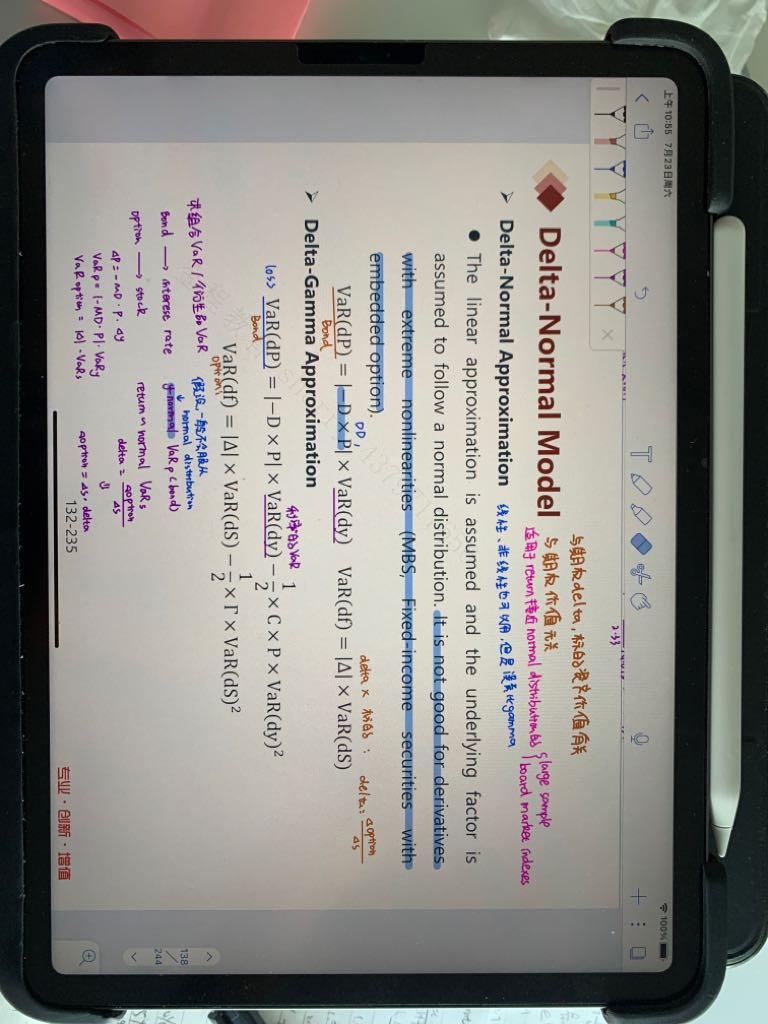 上午10:55 7月23日周六
100%
2-33
与期权delta,标的资产价值有关
Delta-Normal Model 与期权价值无关
适用于return接近normal distribution的 large sample
board market indexes
Delta-Normal Approximation 线性、非线性也可以用,但是没有比gamma
The linear approximation is assumed and the underlying factor is
assumed to follow a normal distribution. It is not good for derivatives
with extreme nonlinearities (MBS, Fixed-income securities with
embedded option).
DD,
delta × 标的: delta: Δoption/ΔS
VaR(dP) = |−D × P| × VaR(dy) VaR(df) = |Δ| × VaR(dS)
Bond
Delta-Gamma Approximation
利率的VaR
loss VaR(dP) = |−D × P| × VaR(dy) − 1/2 × C × P × VaR(dy)²
Bond
VaR(df) = |Δ| × VaR(dS) − 1/2 × Γ × VaR(dS)²
option:
求组合VaR / 衍生品VaR 假设,一般不会服从
↓ normal distribution
Bond → interest rate y normal VaR p (bond)
option → stock return normal VaRs
ΔP = -MD · P · Δy delta = Δoption/ΔS
VaR p = |-MD · P| · VaRy
VaR option = |Δ| · VaRs Δoption = ΔS · delta
132-235
专业 · 创新 · 增值
138
244